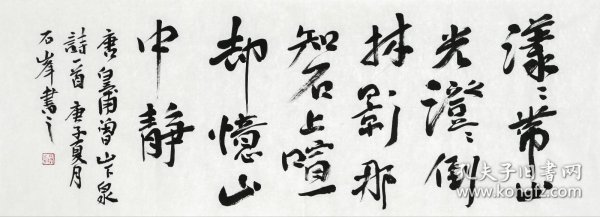 漾漾帶山
光澄澄倒
林影那
知石上喧
却憶山
中靜
唐皇甫曾山下泉
詩一首庚子夏月
石峰書之
孔夫子旧书网
www.kongfz.com